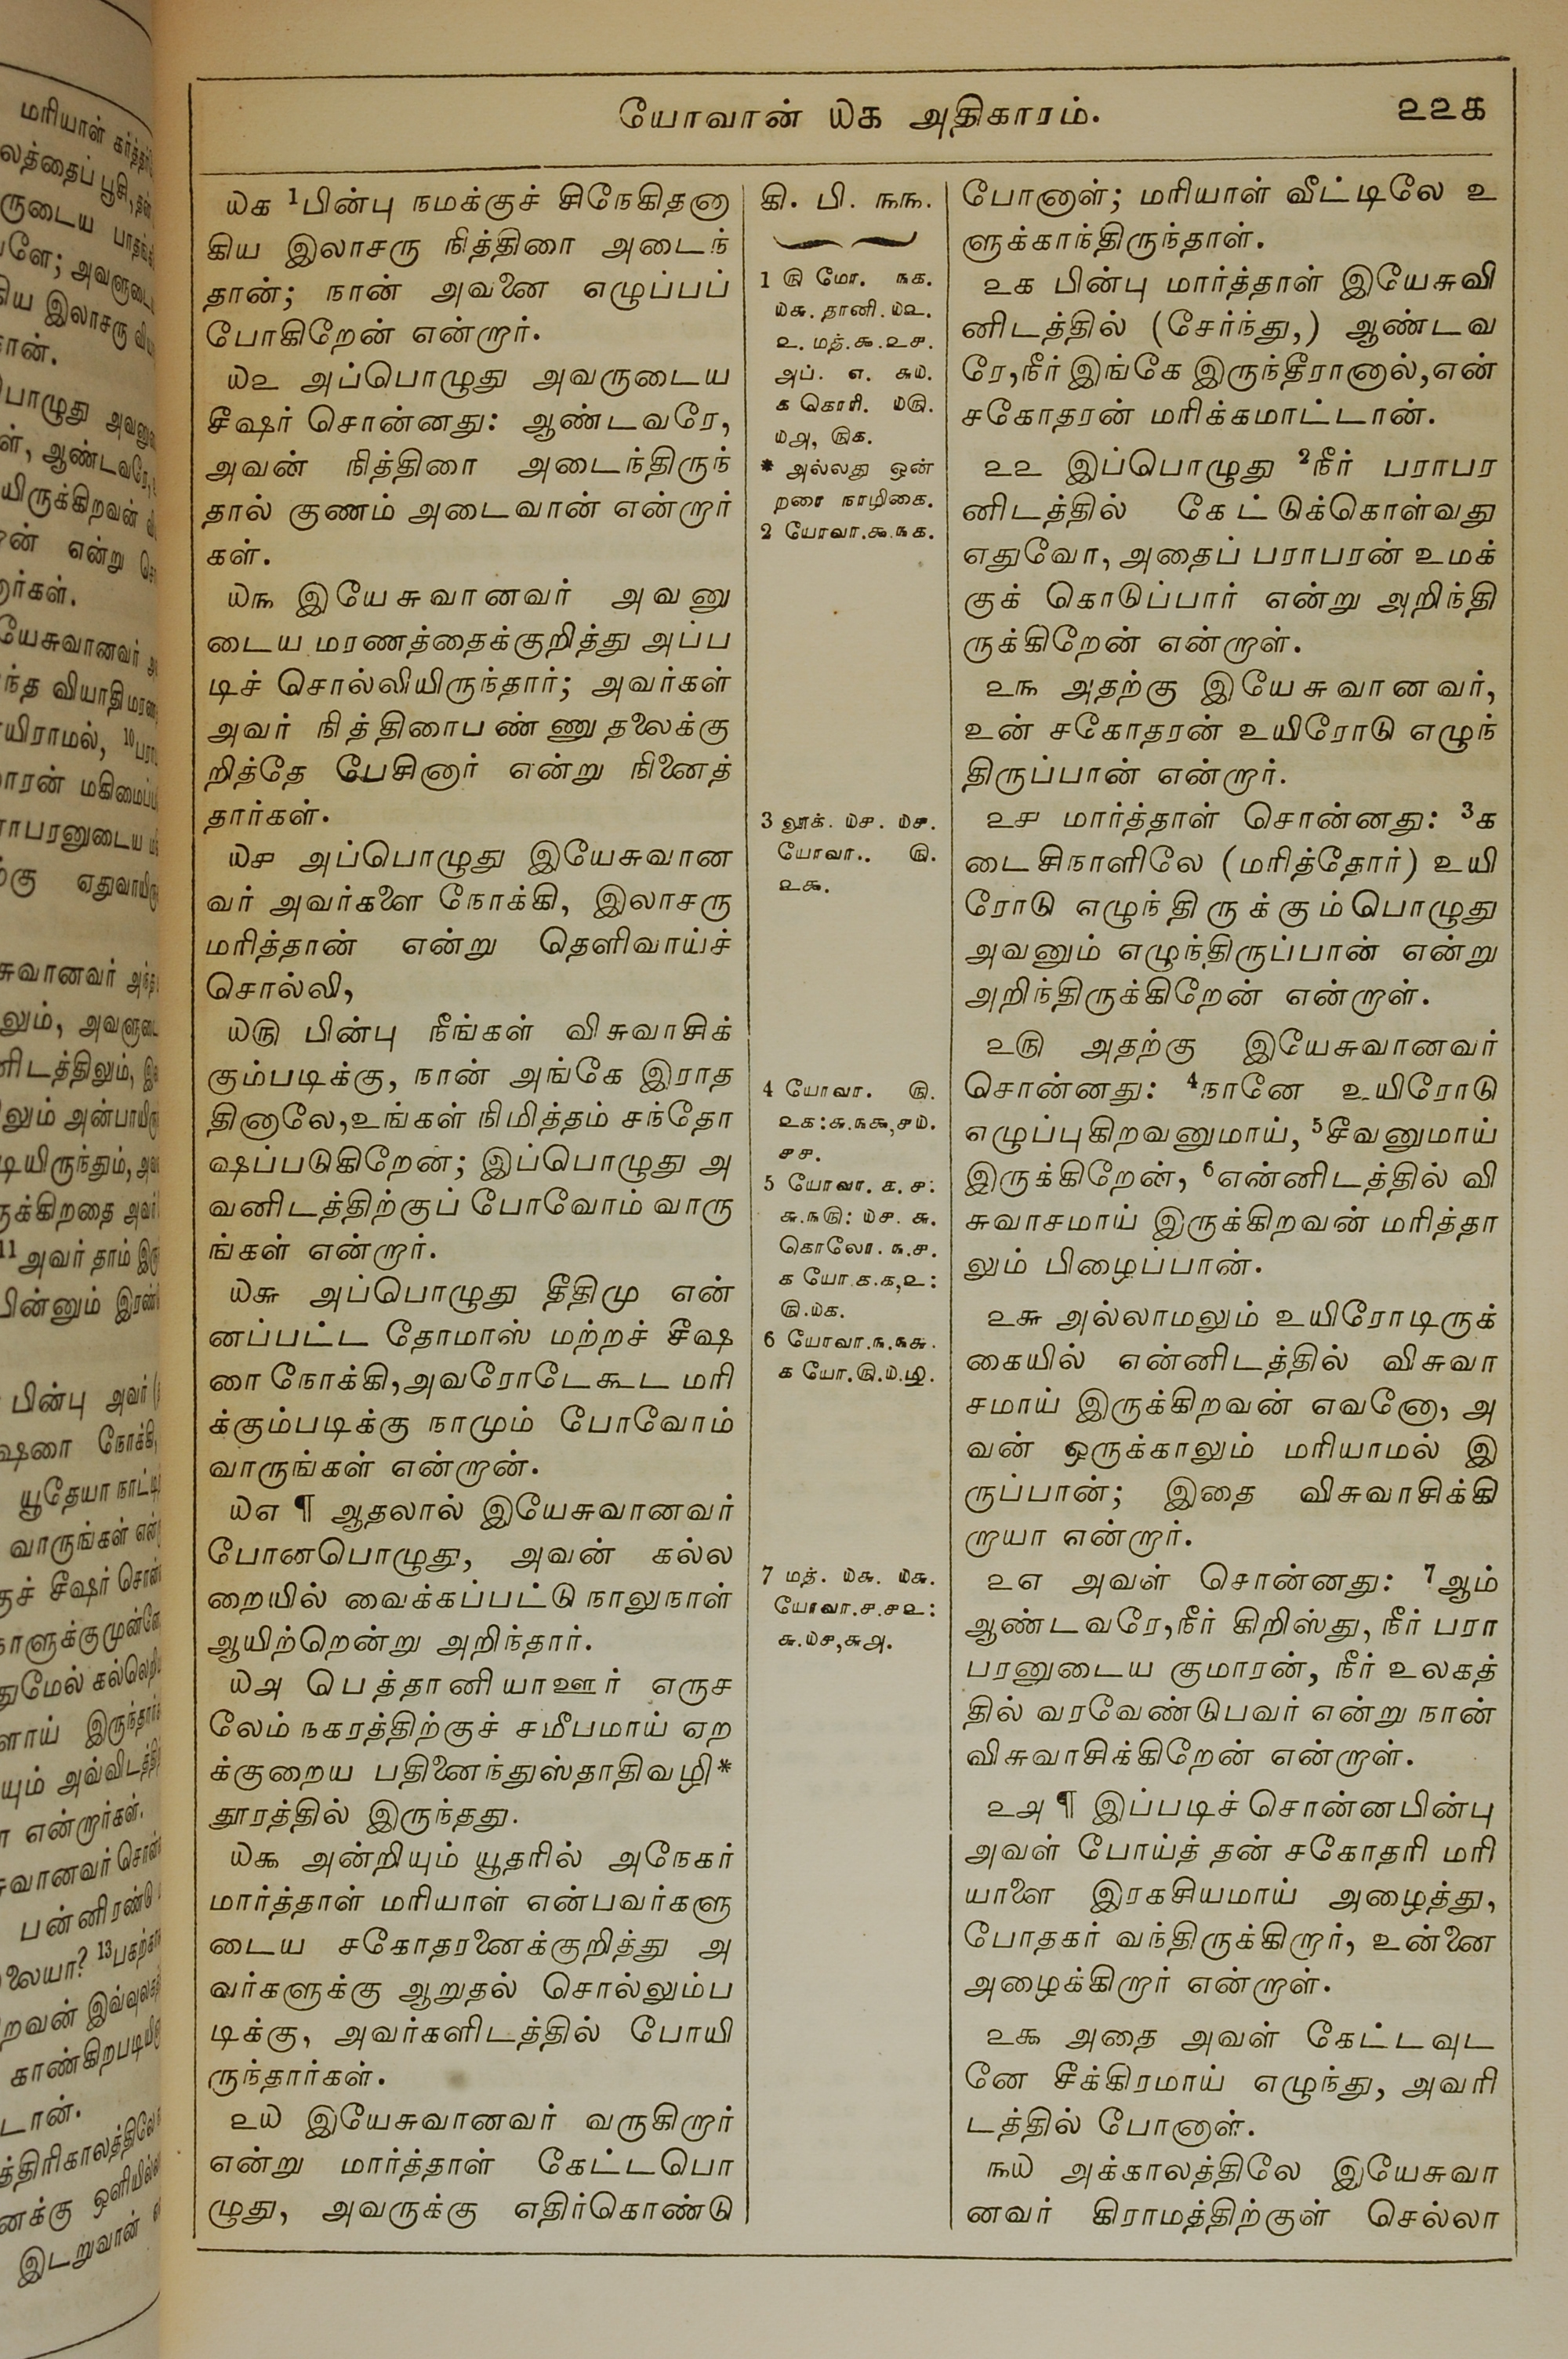 யோவான் ௰௧ அதிகாரம்.
௨௨௧
௰௧ ¹பின்பு நமக்குச் சிநேகிதனா
கிய இலாசரு நித்திரை அடைந்
தான்; நான் அவனை எழுப்பப்
போகிறேன் என்றார்.
௰௨ அப்பொழுது அவருடைய
சீஷர் சொன்னது: ஆண்டவரே,
அவன் நித்திரை அடைந்திருந்
தால் குணம் அடைவான் என்றார்
கள்.
௰௩ இயேசுவானவர் அவனு
டைய மரணத்தைக்குறித்து அப்ப
டிச் சொல்லியிருந்தார்; அவர்கள்
அவர் நித்திரைபண்ணுதலைக்கு
றித்தே பேசினார் என்று நினைத்
தார்கள்.
௰௪ அப்பொழுது இயேசுவான
வர் அவர்களை நோக்கி, இலாசரு
மரித்தான் என்று தெளிவாய்ச்
சொல்லி,
௰௫ பின்பு நீங்கள் விசுவாசிக்
கும்படிக்கு, நான் அங்கே இராத
தினாலே,உங்கள் நிமித்தம் சந்தோ
ஷப்படுகிறேன்; இப்பொழுது அ
வனிடத்திற்குப் போவோம் வாரு
ங்கள் என்றார்.
௰௬ அப்பொழுது தீதிமு என்
னப்பட்ட தோமாஸ் மற்றச் சீஷ
ரை நோக்கி,அவரோடேகூட மரி
க்கும்படிக்கு நாமும் போவோம்
வாருங்கள் என்றான்.
௰௭ ¶ ஆதலால் இயேசுவானவர்
போனபொழுது, அவன் கல்ல
றையில் வைக்கப்பட்டு நாலுநாள்
ஆயிற்றென்று அறிந்தார்.
௰௮ பெத்தானியாஊர் எருச
லேம் நகரத்திற்குச் சமீபமாய் ஏற
க்குறைய பதினைந்துஸ்தாதிவழி*
தூரத்தில் இருந்தது.
௰௯ அன்றியும் யூதரில் அநேகர்
மார்த்தாள் மரியாள் என்பவர்களு
டைய சகோதரனைக்குறித்து அ
வர்களுக்கு ஆறுதல் சொல்லும்ப
டிக்கு, அவர்களிடத்தில் போயி
ருந்தார்கள்.
௨௰ இயேசுவானவர் வருகிறார்
என்று மார்த்தாள் கேட்டபொ
ழுது, அவருக்கு எதிர்கொண்டு
கி. பி. ௩௩.
1 ௫ மோ. ௩௧.
௰௬. தானி. ௰௨.
௨. மத். ௯. ௨௪.
அப். ௭. ௬௰.
௧ கொரி. ௰௫.
௰௮, ௫௧.
* அல்லது ஒன்
றரை நாழிகை.
2 யோவா.௯.௩௧.
3 லூக். ௰௪. ௰௪.
யோவா.. ௫.
௨௯.
4 யோவா. ௫.
௨௧:௬.௩௯,௪௰.
௪௪.
5 யோவா. ௧. ௪:
௬.௩௫: ௰௪. ௬.
கொலோ. ௩.௪.
௧ யோ.௧.௧,௨:
௫.௰௧.
6 யோவா.௩.௩௬.
௧ யோ.௫.௰.
7 மத். ௰௬. ௰௬.
யோவா.௪.௪௨:
௬.௰௪,௬௮.
போனாள்; மரியாள் வீட்டிலே உ
ளுக்காந்திருந்தாள்.
௨௧ பின்பு மார்த்தாள் இயேசுவி
னிடத்தில் (சேர்ந்து,) ஆண்டவ
ரே,நீர் இங்கே இருந்தீரானால்,என்
சகோதரன் மரிக்கமாட்டான்.
௨௨ இப்பொழுது ²நீர் பராபர
னிடத்தில் கேட்டுக்கொள்வது
எதுவோ, அதைப் பராபரன் உமக்
குக் கொடுப்பார் என்று அறிந்தி
ருக்கிறேன் என்றாள்.
௨௩ அதற்கு இயேசுவானவர்,
உன் சகோதரன் உயிரோடு எழுந்
திருப்பான் என்றார்.
௨௪ மார்த்தாள் சொன்னது: ³க
டைசிநாளிலே (மரித்தோர்) உயி
ரோடு எழுந்திருக்கும்பொழுது
அவனும் எழுந்திருப்பான் என்று
அறிந்திருக்கிறேன் என்றாள்.
௨௫ அதற்கு இயேசுவானவர்
சொன்னது: ⁴நானே உயிரோடு
எழுப்புகிறவனுமாய், ⁵சீவனுமாய்
இருக்கிறேன், ⁶என்னிடத்தில் வி
சுவாசமாய் இருக்கிறவன் மரித்தா
லும் பிழைப்பான்.
௨௬ அல்லாமலும் உயிரோடிருக்
கையில் என்னிடத்தில் விசுவா
சமாய் இருக்கிறவன் எவனோ, அ
வன் ஒருக்காலும் மரியாமல் இ
ருப்பான்; இதை விசுவாசிக்கி
றாயா என்றார்.
௨௭ அவள் சொன்னது: ⁷ஆம்
ஆண்டவரே,நீர் கிறிஸ்து, நீர் பரா
பரனுடைய குமாரன், நீர் உலகத்
தில் வரவேண்டுபவர் என்று நான்
விசுவாசிக்கிறேன் என்றாள்.
௨௮ ¶ இப்படிச் சொன்னபின்பு
அவள் போய்த் தன் சகோதரி மரி
யாளை இரகசியமாய் அழைத்து,
போதகர் வந்திருக்கிறார், உன்னை
அழைக்கிறார் என்றாள்.
௨௯ அதை அவள் கேட்டவுட
னே சீக்கிரமாய் எழுந்து, அவரி
டத்தில் போனாள்.
௩௰ அக்காலத்திலே இயேசுவா
னவர் கிராமத்திற்குள் செல்லா